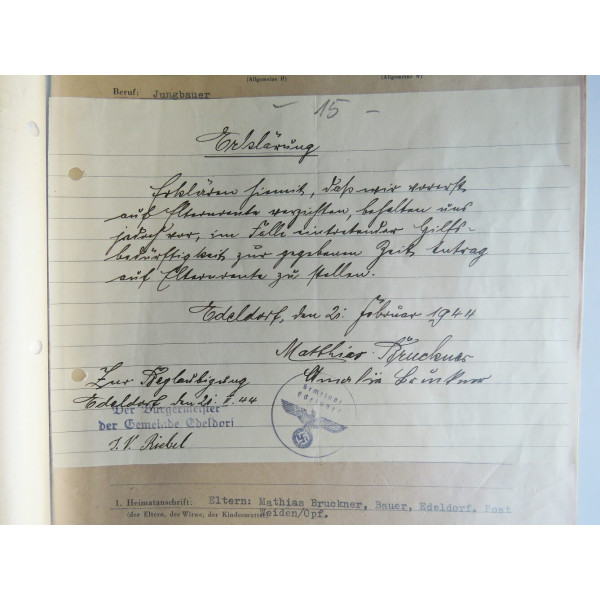 (Allgemeine H) (Allgemeine W)
Beruf: Jungbauer
- 15 -
Erklärung
Erklären hiemit, daß wir vorerst
auf Elternrente verzichten, behalten uns
jedoch vor, im Falle eintretender Hilfs-
bedürftigkeit zur gegebenen Zeit Antrag
auf Elternrente zu stellen.
Edeldorf, den 21. Februar 1944
Matthias Bruckner
Amalie Bruckner
Zur Beglaubigung
Edeldorf den 21. II. 44
Der Bürgermeister
der Gemeinde Edeldorf
J.V. Riebel
Gemeinde
Edeldorf
1. Heimatanschrift: Eltern: Mathias Bruckner, Bauer, Edeldorf, Post
(der Eltern, der Wirwe, der Kindesmutter) Weiden/Opf.